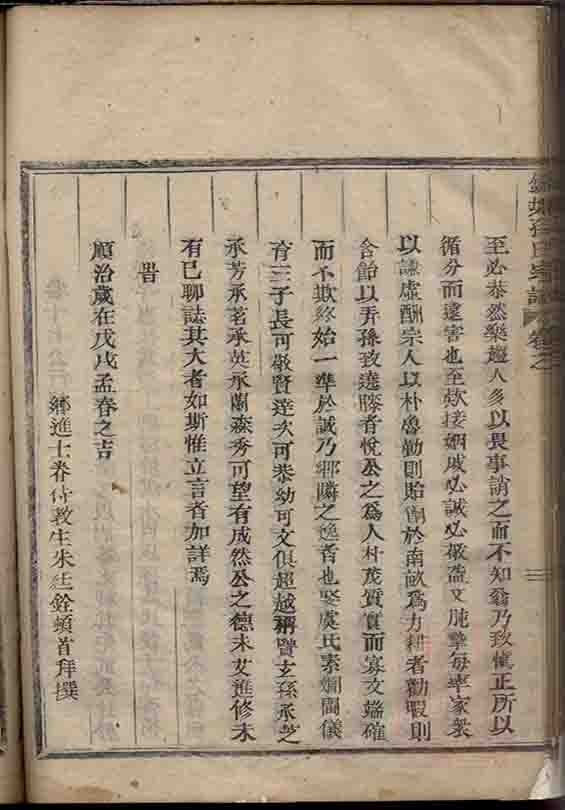 氏宗譜 卷之
至必恭然樂趨人多以畏事誚之而不知翁乃致慎正所以
循分而遠害也至欵接姻戚必誠必敬盃又肫摯每率家衆
以謙虛酬宗人以朴魯勤則貽餉於南畝為力耕者勸暇則
含飴以弄孫致遶膝者悅公之為人朴茂質實而寡文端確
而不欺終始一準於誠乃鄉隣之逸者也娶虞氏素嫻閫儀
育三子長可敬賢達次可恭幼可文俱超越稱賢玄孫承芝
承芳承茗承英承蘭森秀可望有成然公之德未艾進修未
有已聊誌其大者如斯惟立言者加詳焉
旹
順治歲在戊戌孟春之吉
鄉進士眷侍教生朱廷銓頓首拜撰